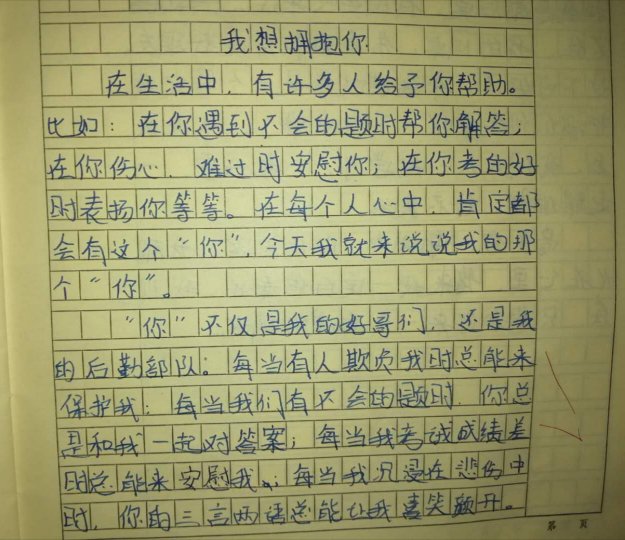 我想拥抱你
在生活中，有许多人给予你帮助。
比如：在你遇到不会的题时帮你解答；
在你伤心，难过时安慰你；在你考的好
时表扬你等等。在每个人心中，肯定都
会有这个“你”，今天我就来说说我的那
个“你”。
“你”不仅是我的好哥们，还是我
的后勤部队。每当有人欺负我时总能来
保护我；每当我们有不会的题时，你总
是和我一起对答案；每当我考试成绩差
时总能来安慰我；每当我沉浸在悲伤中
时，你的三言两语总能让我喜笑颜开。
第 页